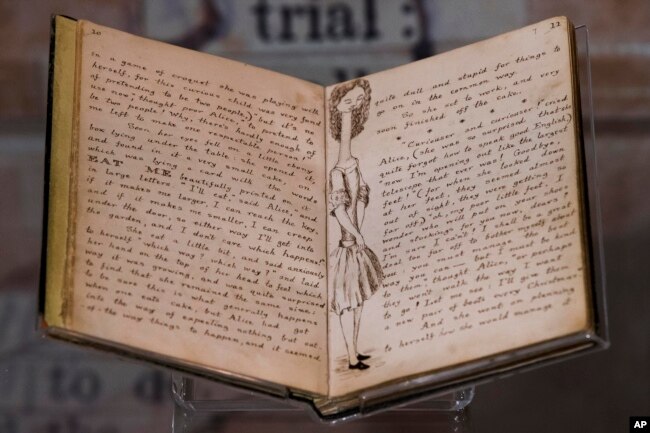 trial :
10
in a game of croquet she was playing with
herself, for this curious child was very fond
of pretending to be two people,) but it's no
use now," thought poor Alice, "to pretend to
be two people! Why, there's hardly enough of
me left to make one respectable person!"
Soon her eyes fell on a little ebony
box lying under the table: she opened it,
and found in it a very small cake, on
which was lying a card with the words
EAT ME beautifully printed on it
in large letters. "I'll eat," said Alice, "and
if it makes me larger, I can reach the key,
and if it makes me smaller, I can creep
under the door, so either way I'll get into
the garden, and I don't care which happens!"
She eat a little bit, and said anxiously
to herself "which way? which way?" and laid
her hand on the top of her head to feel which
way it was growing, and was quite surprised
to find that she remained the same size:
to be sure this is what generally happens
when one eats cake, but Alice had got
into the way of expecting nothing but out-
of-the way things to happen, and it seemed
11
quite dull and stupid for things to
go on in the common way.
So she set to work, and very
soon finished off the cake.
* * * * *
"Curiouser and curiouser!" cried
Alice, (she was so surprised that she
quite forgot how to speak good English,)
"now I'm opening out like the largest
telescope that ever was! Goodbye,
feet!" (for when she looked down
at her feet, they seemed almost
out of sight, they were getting so
far off,) "oh, my poor little feet, I
wonder who will put on your shoes
and stockings for you now, dears?
I'm sure I can't! I shall be a great
deal too far off to bother myself about
you: you must manage the best
way you can — but I must be kind
to them", thought Alice, "or perhaps
they won't walk the way I want
to go! Let me see: I'll give them
a new pair of boots every Christmas."
And she went on planning
to herself how she would manage it
to d
AP